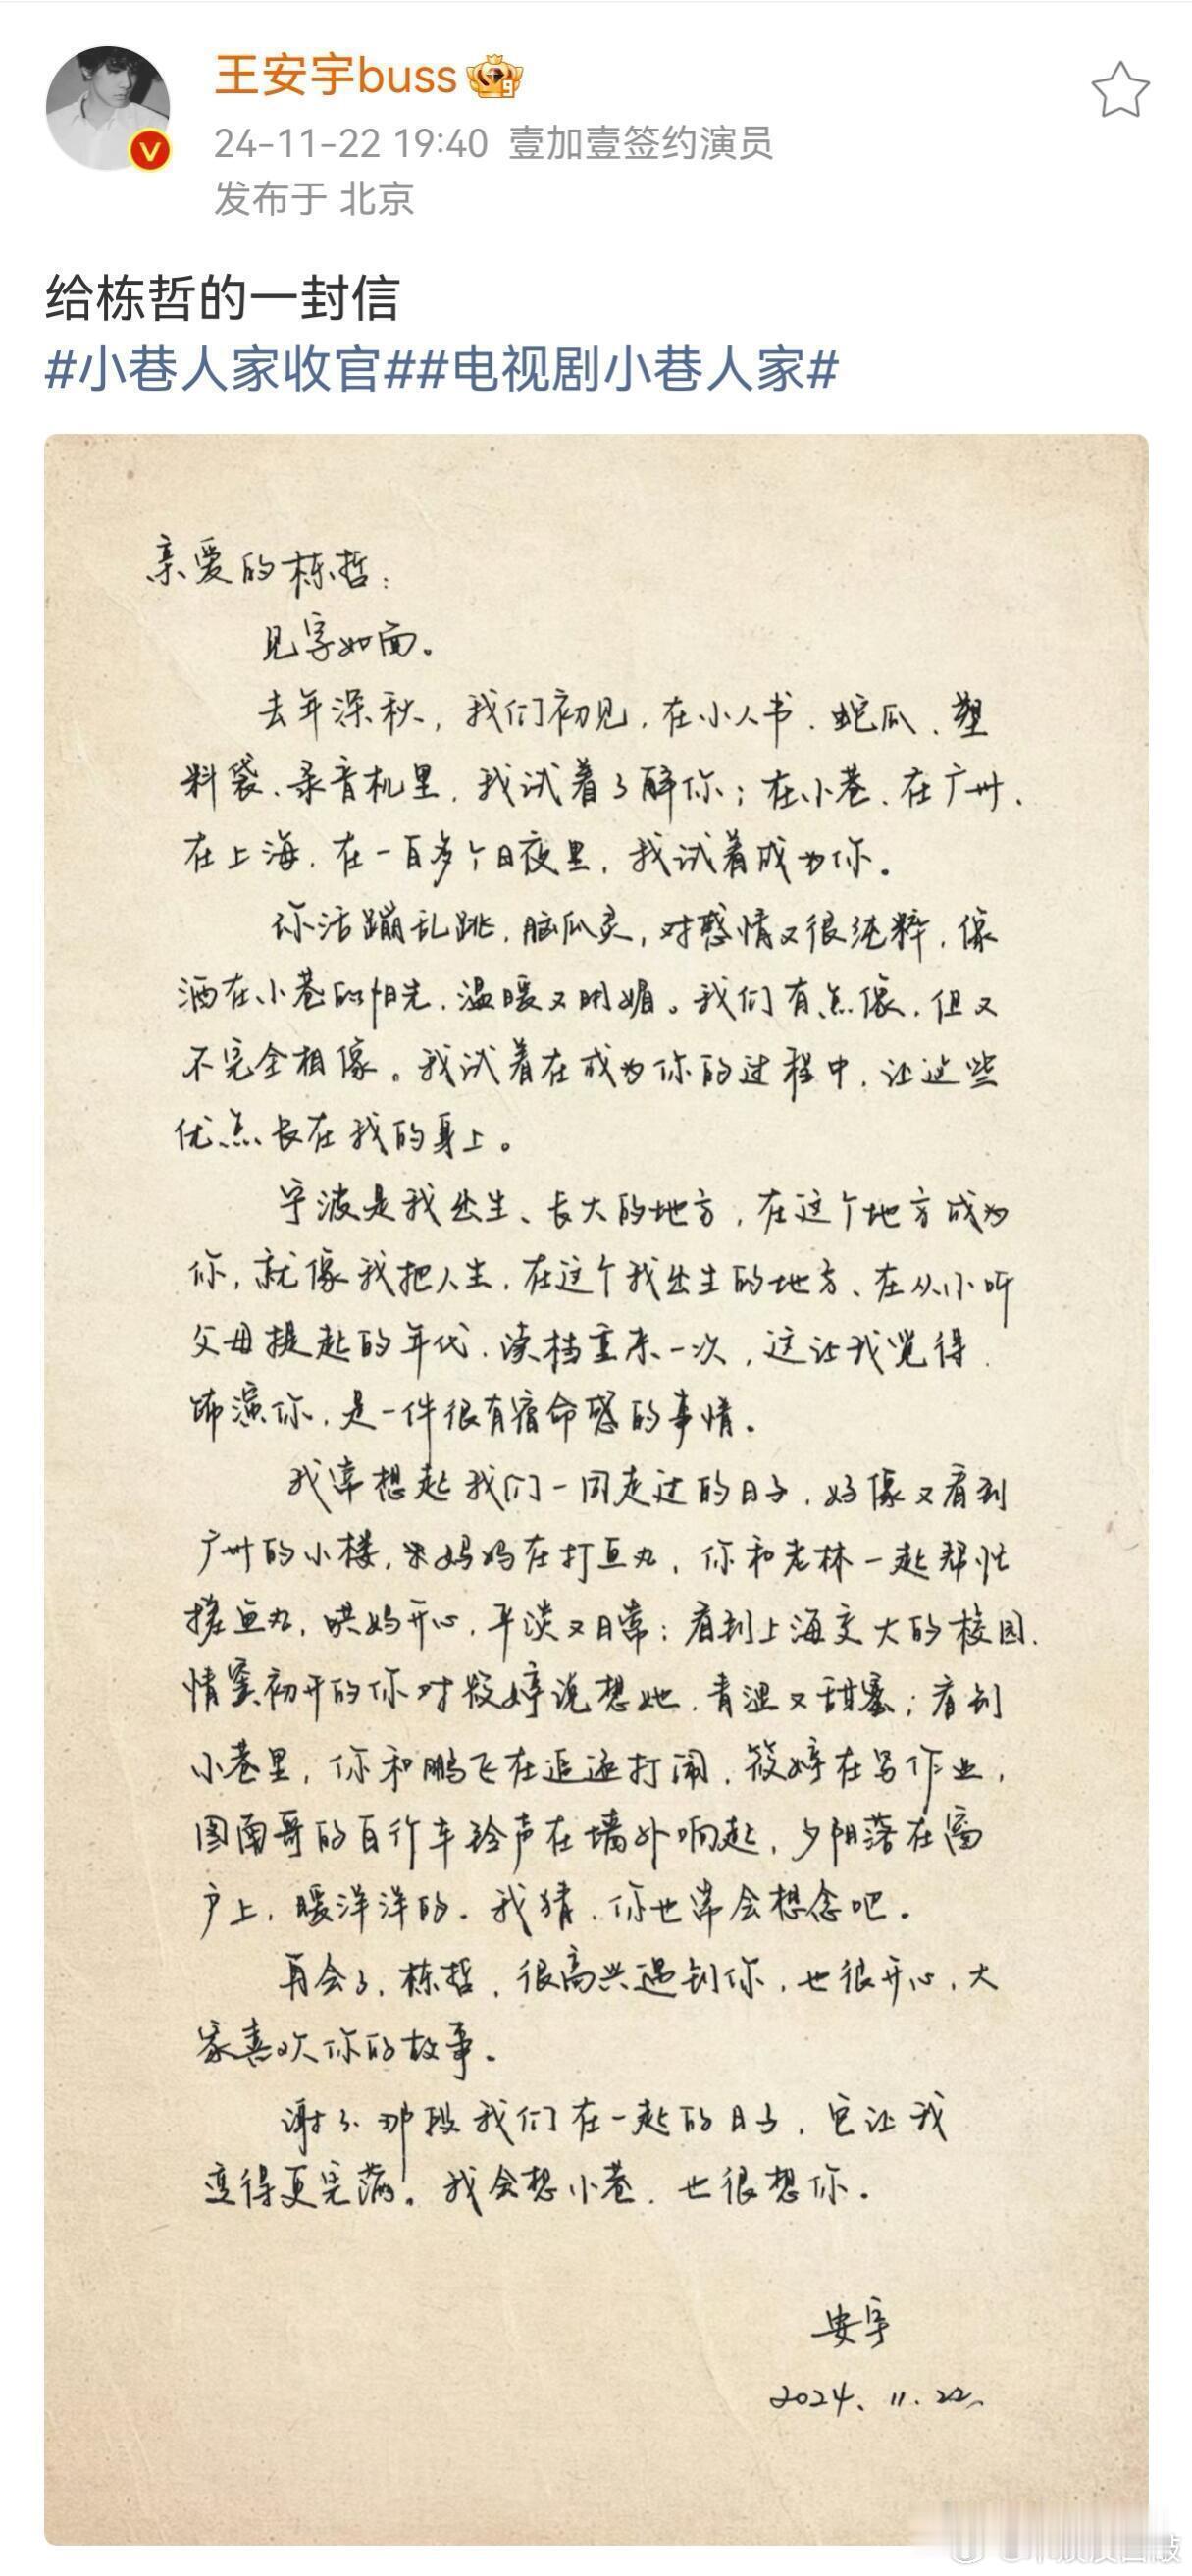 王安宇buss
24-11-22 19:40 壹加壹签约演员
发布于 北京
给栋哲的一封信
#小巷人家收官##电视剧小巷人家#
亲爱的栋哲：
见字如面。
去年深秋，我们初见，在小人书、蛇瓜、塑
料袋、录音机里，我试着了解你；在小巷、在广州、
在上海，在一百多个日夜里，我试着成为你。
你活蹦乱跳，脑瓜灵，对感情又很纯粹，像
洒在小巷的阳光，温暖又明媚。我们有点像，但又
不完全相像。我试着在成为你的过程中，让这些
优点长在我的身上。
宁波是我出生、长大的地方，在这个地方成为
你，就像我把人生，在这个我出生的地方、在从小听
父母提起的年代，读档重来一次，这让我觉得，
饰演你，是一件很有宿命感的事情。
我常想起我们一同走过的日子，好像又看到
广州的小楼，宋妈妈在打鱼丸，你和老林一起帮忙
搓鱼丸，哄妈开心，平淡又日常；看到上海交大的校园，
情窦初开的你对筱婷说想她，青涩又甜蜜；看到
小巷里，你和鹏飞在追逐打闹，筱婷在写作业，
图南哥的自行车铃声在墙外响起，夕阳落在窗
户上，暖洋洋的。我猜，你也常会想念吧。
再会了，栋哲，很高兴遇到你，也很开心，大
家喜欢你的故事。
谢了，那段我们在一起的日子，它让我
变得更完满。我会想小巷，也很想你。
安宇
2024.11.22